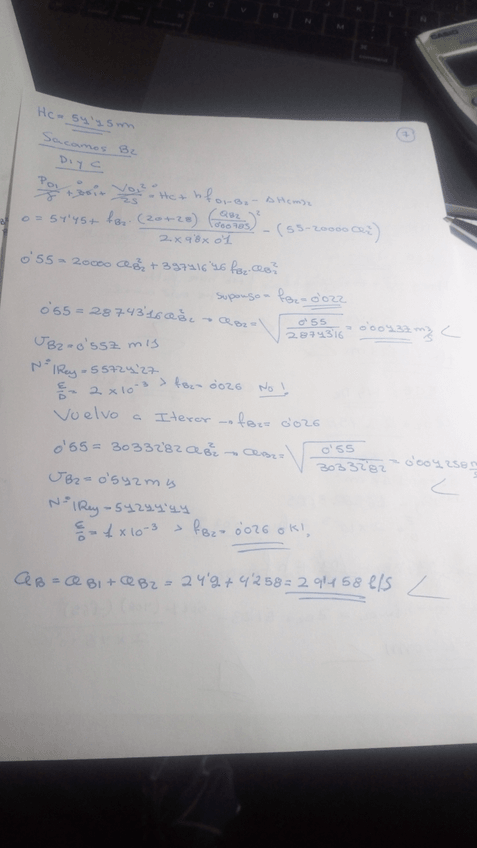 Hc = 54'45 m
Sacamos B2
D1 y C
PD1/γ + ZD1 + VD1²/2g = Hc + hf D1-B2 - ΔH(m)2
0 = 54'45 + fB2 · (20+28)/(2×9'8×0'1) (QB2/0'00785)² - (55-20000QB2²)
0'55 = 20000 QB2² + 397416'46 fB2·QB2²
Supongo = fB2 = 0'022
0'55 = 28743'16 QB2² → QB2 = √(0'55/28743'16) = 0'00437 m³/s
UB2 = 0'557 m/s
Nº Rey = 55724'27
ε/D = 2 x 10⁻³ > fB2 = 0'026 No!
Vuelvo a Iterar → fB2 = 0'026
0'55 = 30332'82 QB2² → QB2 = √(0'55/30332'82) = 0'004258 m³/s
UB2 = 0'542 m/s
Nº Rey = 54244'44
ε/D = 1 x 10⁻³ > fB2 = 0'026 ok!
QB = QB1 + QB2 = 24'9 + 4'258 = 29'158 l/s
CASIO